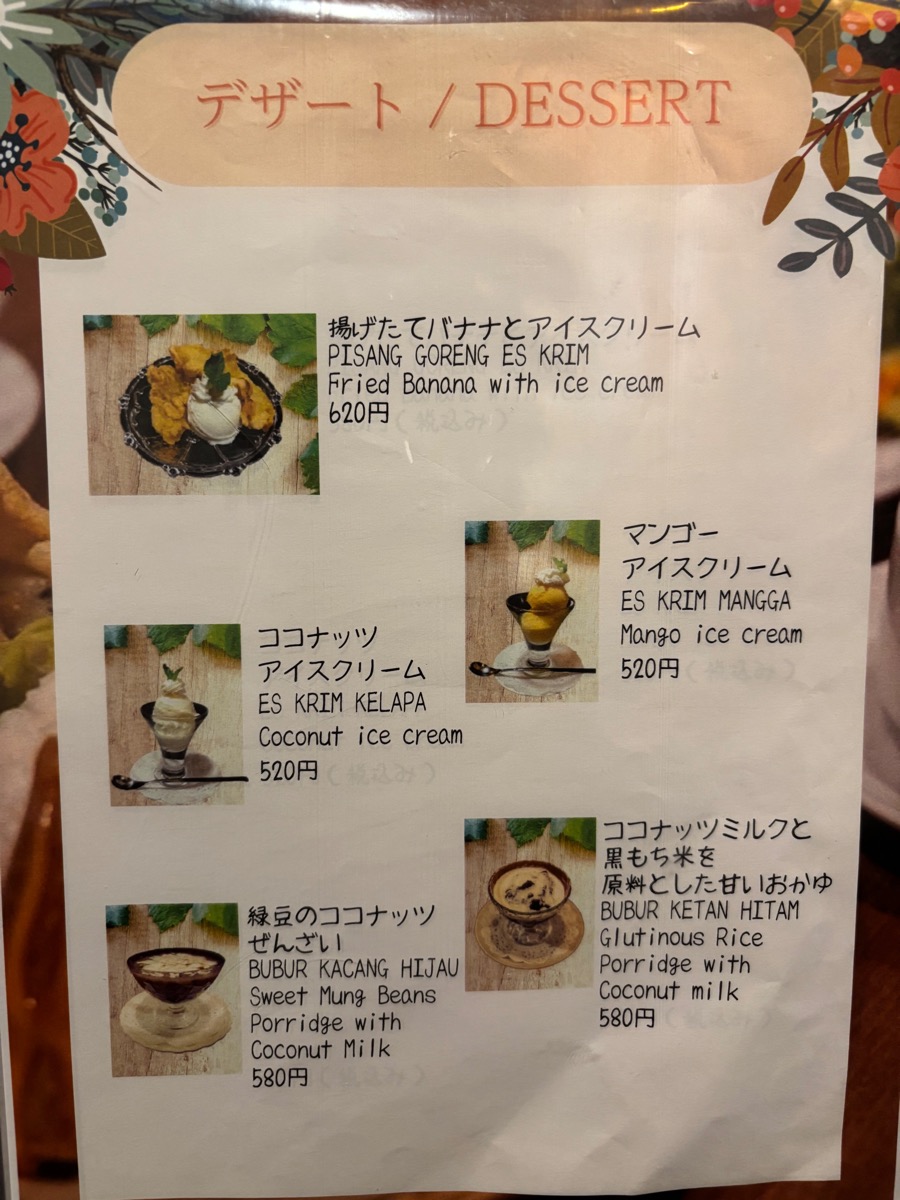 デザート / DESSERT
揚げたてバナナとアイスクリーム
PISANG GORENG ES KRIM
Fried Banana with ice cream
620円(税込み)
マンゴー
アイスクリーム
ES KRIM MANGGA
Mango ice cream
520円(税込み)
ココナッツ
アイスクリーム
ES KRIM KELAPA
Coconut ice cream
520円(税込み)
ココナッツミルクと
黒もち米を
原料とした甘いおかゆ
BUBUR KETAN HITAM
Glutinous Rice
Porridge with
Coconut milk
580円(税込み)
緑豆のココナッツ
ぜんざい
BUBUR KACANG HIJAU
Sweet Mung Beans
Porridge with
Coconut Milk
580円(税込み)